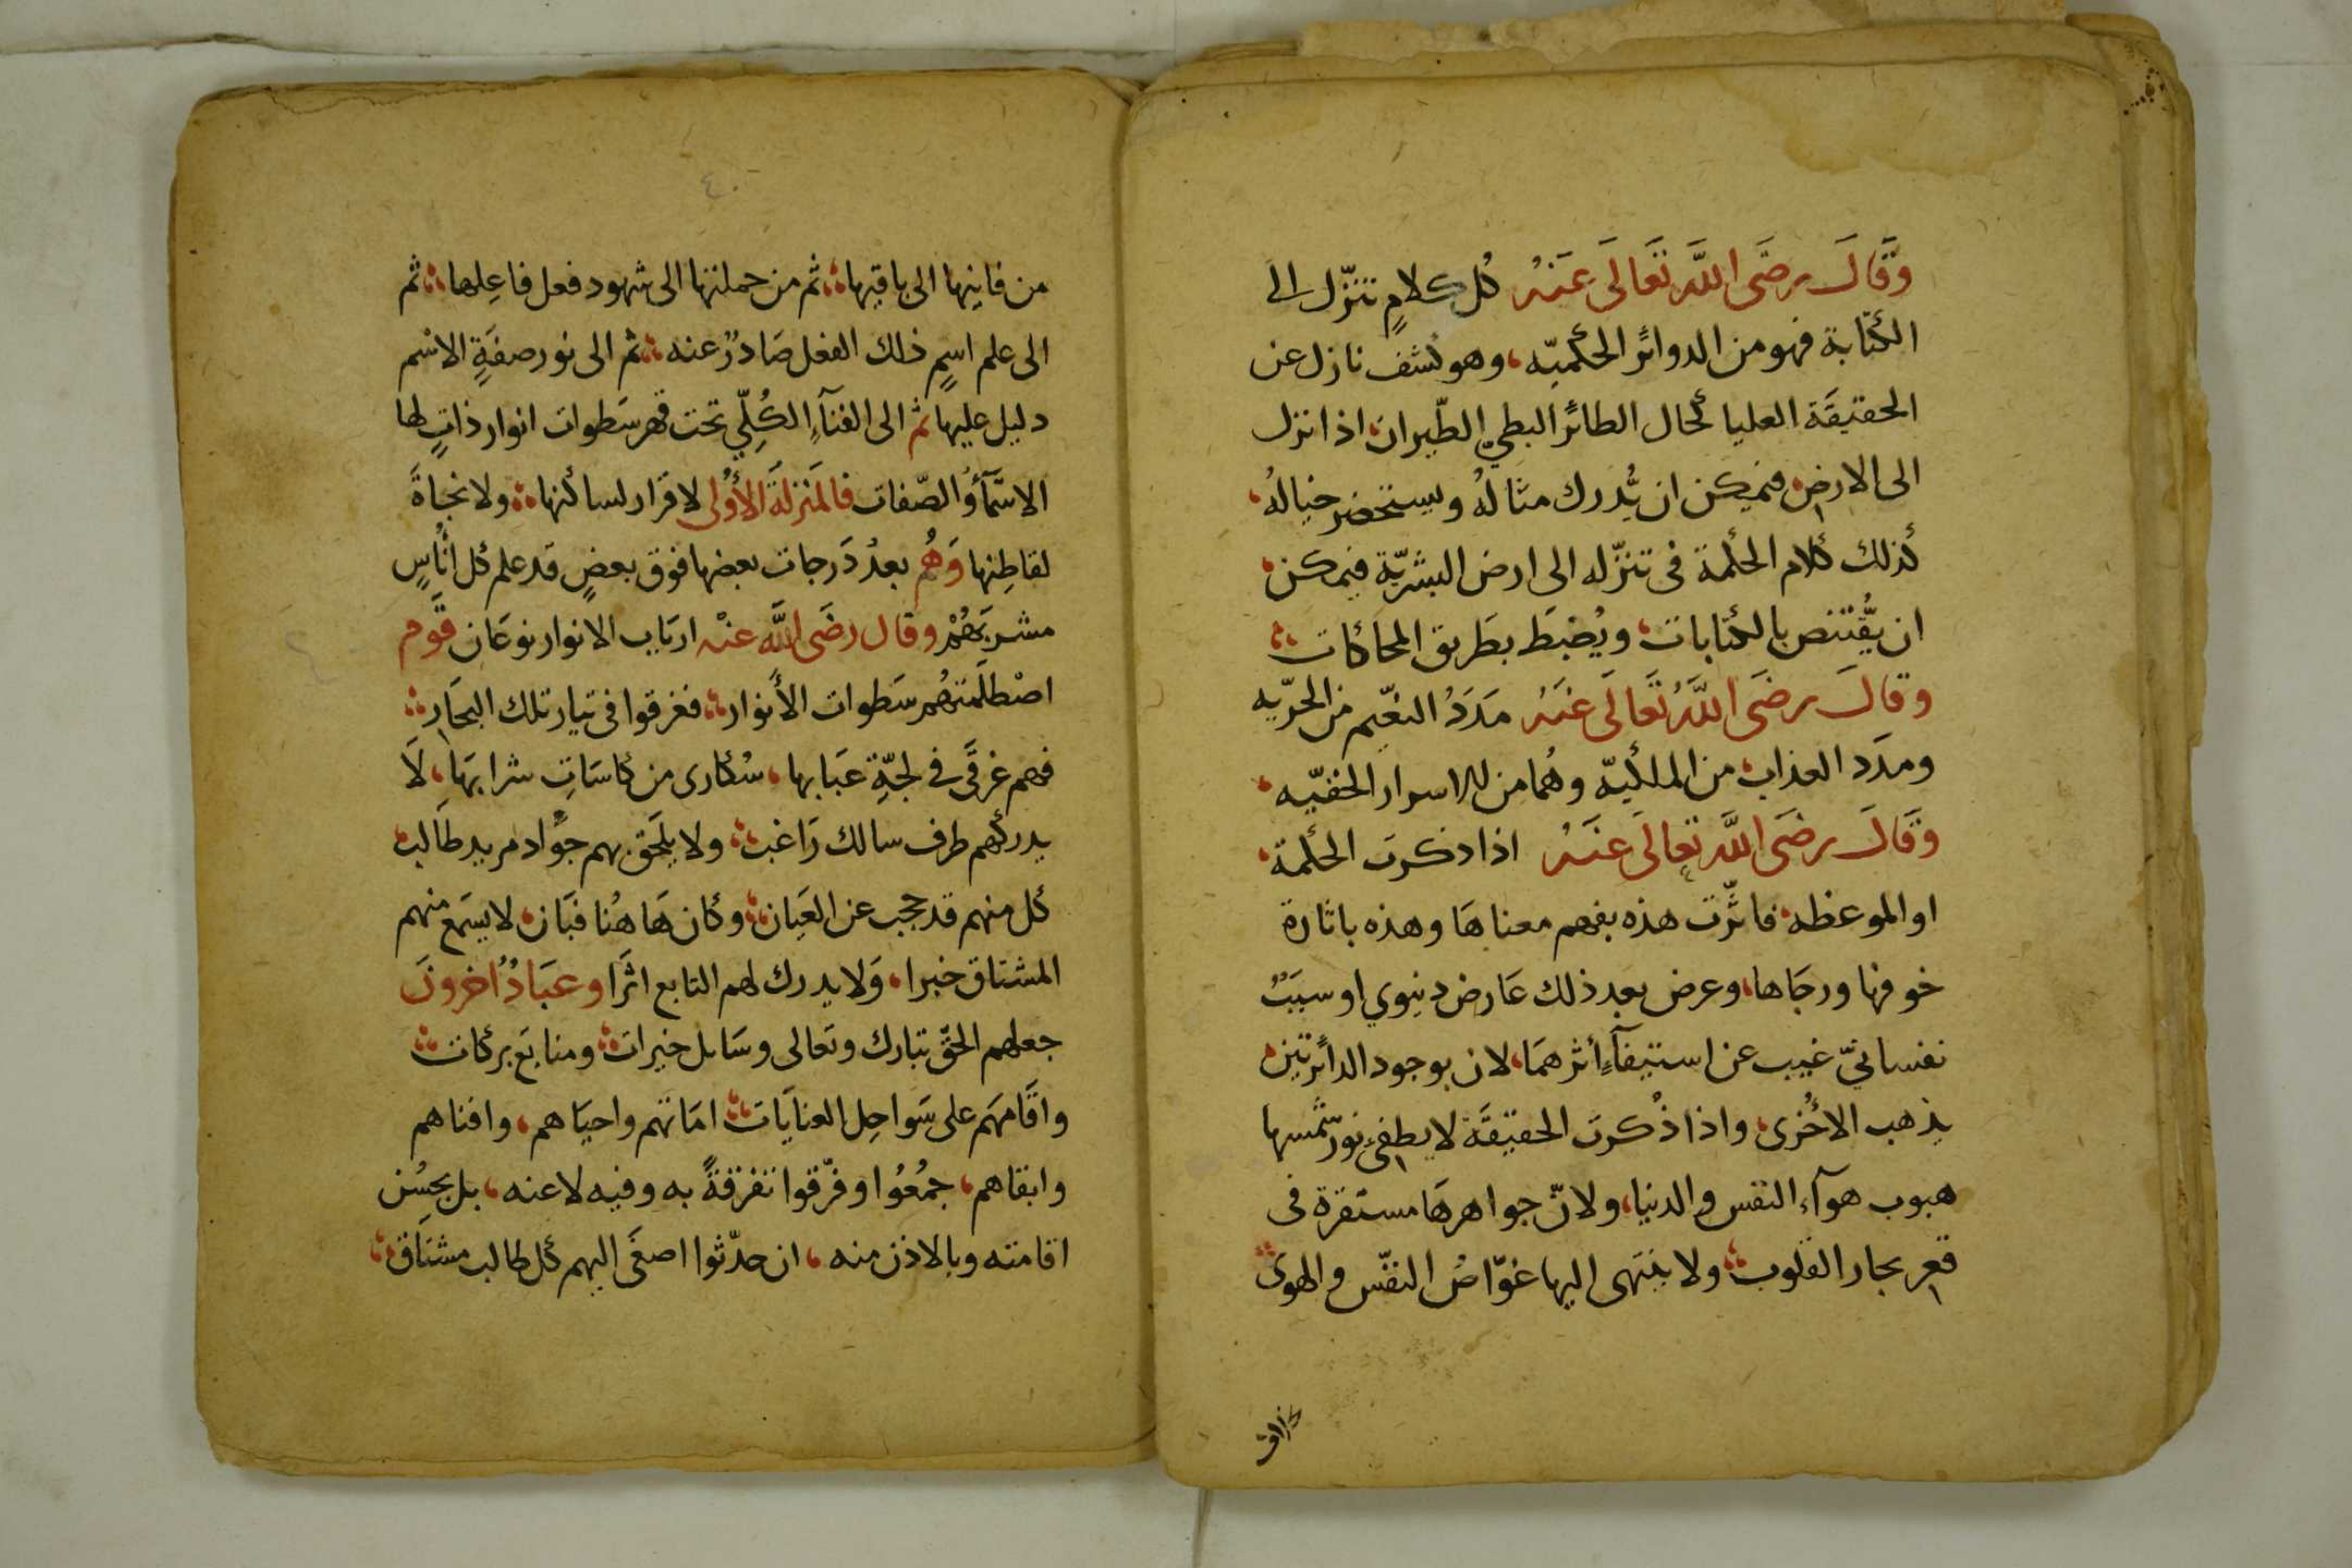 وَقَالَ رضَى اللَّه تَعَالَى عَنهُ كُل كلامٍ تنزّل الى
الكتابة فهو من الدوائر الحكميّه، وهو كشف نازل عن
الحقيقَة العليا كحال الطائر البطيء الطّيران، اذا نزل
الى الارض، فيمكن ان يُّدرك مثالهُ ويستحضر خيالهُ،
كذلك كلام الحكمة فى تنزّله الى ارض البشريّة فيمكن،
ان يُّقتنص بالكتابات، ويُضبَط بطَريق المحاكات
وقالَ رضَى اللَّهُ تَعَالَى عَنهُ مَدَدُ النعَيم من الحرّيه
ومدَد العذاب، من الملكيّه وهُما من الاسرار الخفيّه،
وقَالَ رضَى اللَّه تعالَى عنَهُ اذا ذكرت الحكمة،
او الموعظه، فاثّرت هذه بفهم معناهَا وهذه باثارة
خوفها ورجَاها، وعرض بعد ذلك عَارض دنيوي او سبَبٌ
نفسانيّ غيب عن استيفآءِ أثرهمَا، لان بوجود الدائرتين،
يذهب الاخُرى، واذا ذُكرت الحقيقَة لا يطفىءِ نورشمسها
هبوب هوآء النفس والدنيا، ولانّ جواهرهَا مستقرة فى
قعر بحار القلوب، ولا ينتهى اليها غوّاصُ النفّس والهوى
من فانيها الى باقيها، ثم من جملتها الى شهود فعل فاعِلها، ثم
الى علم اسمٍ ذلك الفعل صَادرٌ عنه، ثم الى نور صفةٍ الاسْم
دليل عليها ثم الى الفنآءِ الكُلِّي تحت قهر سَطوات انوار ذاتٍ لها
الاسمَآءُ والصّفات فالمَنزلَة الأُولى لا قرار لسائكنها، ولا نجاةَ
لقاطِنها وَهُم بعدُ دَرجات بعضها فوق بعضٍ قد علم كل انُاسٍ
مشربَهُمْ وقال رضَى اللَّه عنْه ارباب الانوار نوعَان قَوم
اصْطلَمتهُم سَطوات الأنوار، فغرقوا فى تيار تلك البحَار
فهم غرقَى فى لجّةِ عبَابها، سُكارى من كاسَاتِ شرابهَا، لَا
يدركهم طرف سالك رَاغب، ولا يلحَق بهم جوُاد مريد طَالب،
كل منهم قد حجب عن العَيان، وكان هَا هُنا فبَان، لا يسَمع منهم
المشتاق خبرا، وَلا يدرك لهم التابع اثرًا وعبَادٌ اخرونَ
جعلهم الحَقّ تبارك وتعالى وسَائل خيرات، ومنابَع بركات
واقَامهَم على سَواحِل العنايَات، امَاتهم واحيَاهم، وافناهم
وابقاهم، جمُعُوا وفرّقوا تفرقةً به وفيه لا عنه، بل بحِسُن
اقامته وبالاذن منه، ان حدّثوا اصغَى اليهم كل طالب مشتَاق،